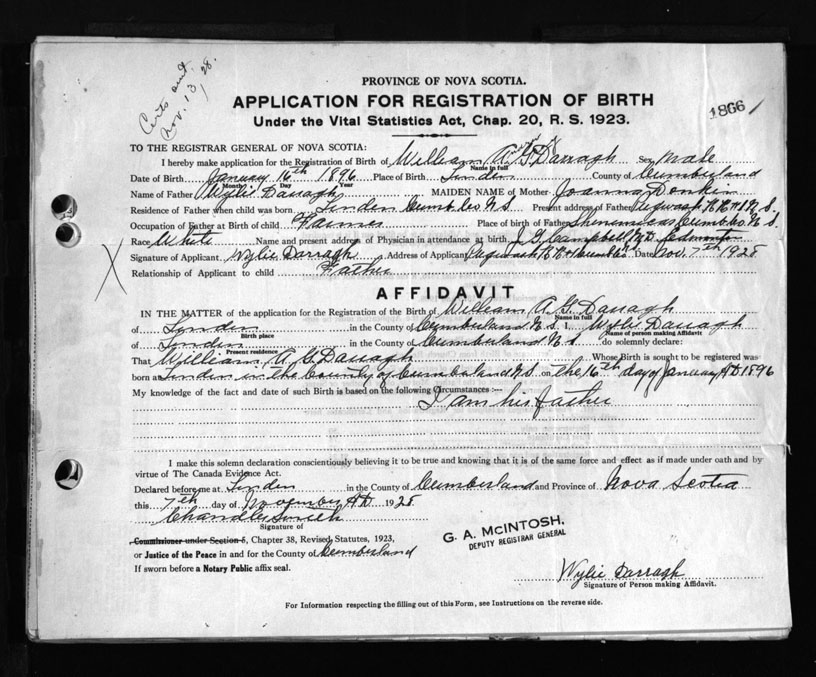 Certs sent
Nov. 13/28.
1866
PROVINCE OF NOVA SCOTIA.
APPLICATION FOR REGISTRATION OF BIRTH
Under the Vital Statistics Act, Chap. 20, R. S. 1923.
TO THE REGISTRAR GENERAL OF NOVA SCOTIA:
I hereby make application for the Registration of Birth of William A. G Darragh Sex Male
Name in full
Date of Birth January 16th 1896 Place of Birth Linden County of Cumberland
Month Day Year
Name of Father Wylie Darragh MAIDEN NAME of Mother Joanna Donkin
Residence of Father when child was born Linden Cumb Co N S Present address of Father Pugwash R R #1 N. S.
Occupation of Father at Birth of child Farmer Place of birth of Father Shenimicas Cumb Co N. S.
Race White Name and present address of Physician in attendance at birth J. G. Campbell MD Edmonton
Signature of Applicant Wylie Darragh Address of Applicant Pugwash R R # Cumb Co N Date Nov. 7th 1928
Relationship of Applicant to child Father
AFFIDAVIT
IN THE MATTER of the application for the Registration of the Birth of William A. G. Darragh
Name in full
of Linden in the County of Cumberland N. S. I, Wylie Darragh
Birth place Name of person making Affidavit
of Linden in the County of Cumberland N S do solemnly declare:
Present residence
That William A G Darragh Whose Birth is sought to be registered was
born at Linden in the County of Cumberland N.S. on the 16th day of January A D 1896
My knowledge of the fact and date of such Birth is based on the following Circumstances :—
I am his father
I make this solemn declaration conscientiously believing it to be true and knowing that it is of the same force and effect as if made under oath and by
virtue of The Canada Evidence Act.
Declared before me at Linden in the County of Cumberland and Province of Nova Scotia
this 7th day of November A D 1928
Chandler Smith
Signature of
Commissioner under Section 5, Chapter 38, Revised Statutes, 1923,
or Justice of the Peace in and for the County of Cumberland
If sworn before a Notary Public affix seal.
G. A. McINTOSH,
DEPUTY REGISTRAR GENERAL
Wylie Darragh
Signature of Person making Affidavit.
For Information respecting the filling out of this Form, see Instructions on the reverse side.